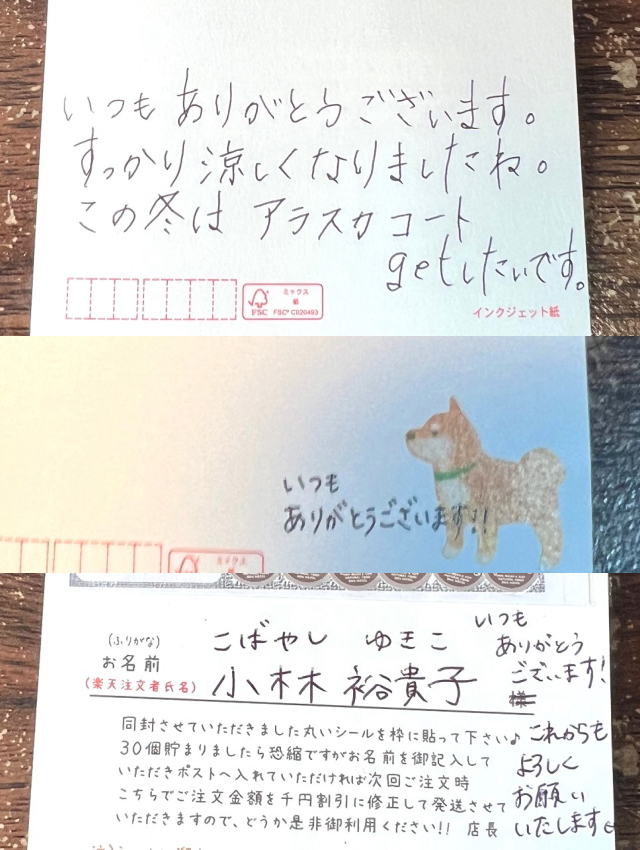 いつもありがとうございます。
すっかり涼しくなりましたね。
この冬は アラスカコート
getしたいです。
ミックス
紙
FSC
FSC® C020493
インクジェット紙
いつも
ありがとうございます!!
ミックス
(ふりがな)
こばやし ゆきこ
お名前
(楽天注文者氏名)
小林 裕貴子
様
いつも
ありがとう
ございます!
これからも
よろしく
お願い
いたします
同封させていただきました丸いシールを枠に貼って下さい♪
30個貯まりましたら恐縮ですがお名前を御記入して
いただきポストへ入れていただければ次回ご注文時
こちらでご注文金額を千円割引に修正して発送させて
いただきますので、どうか是非御利用ください!! 店長